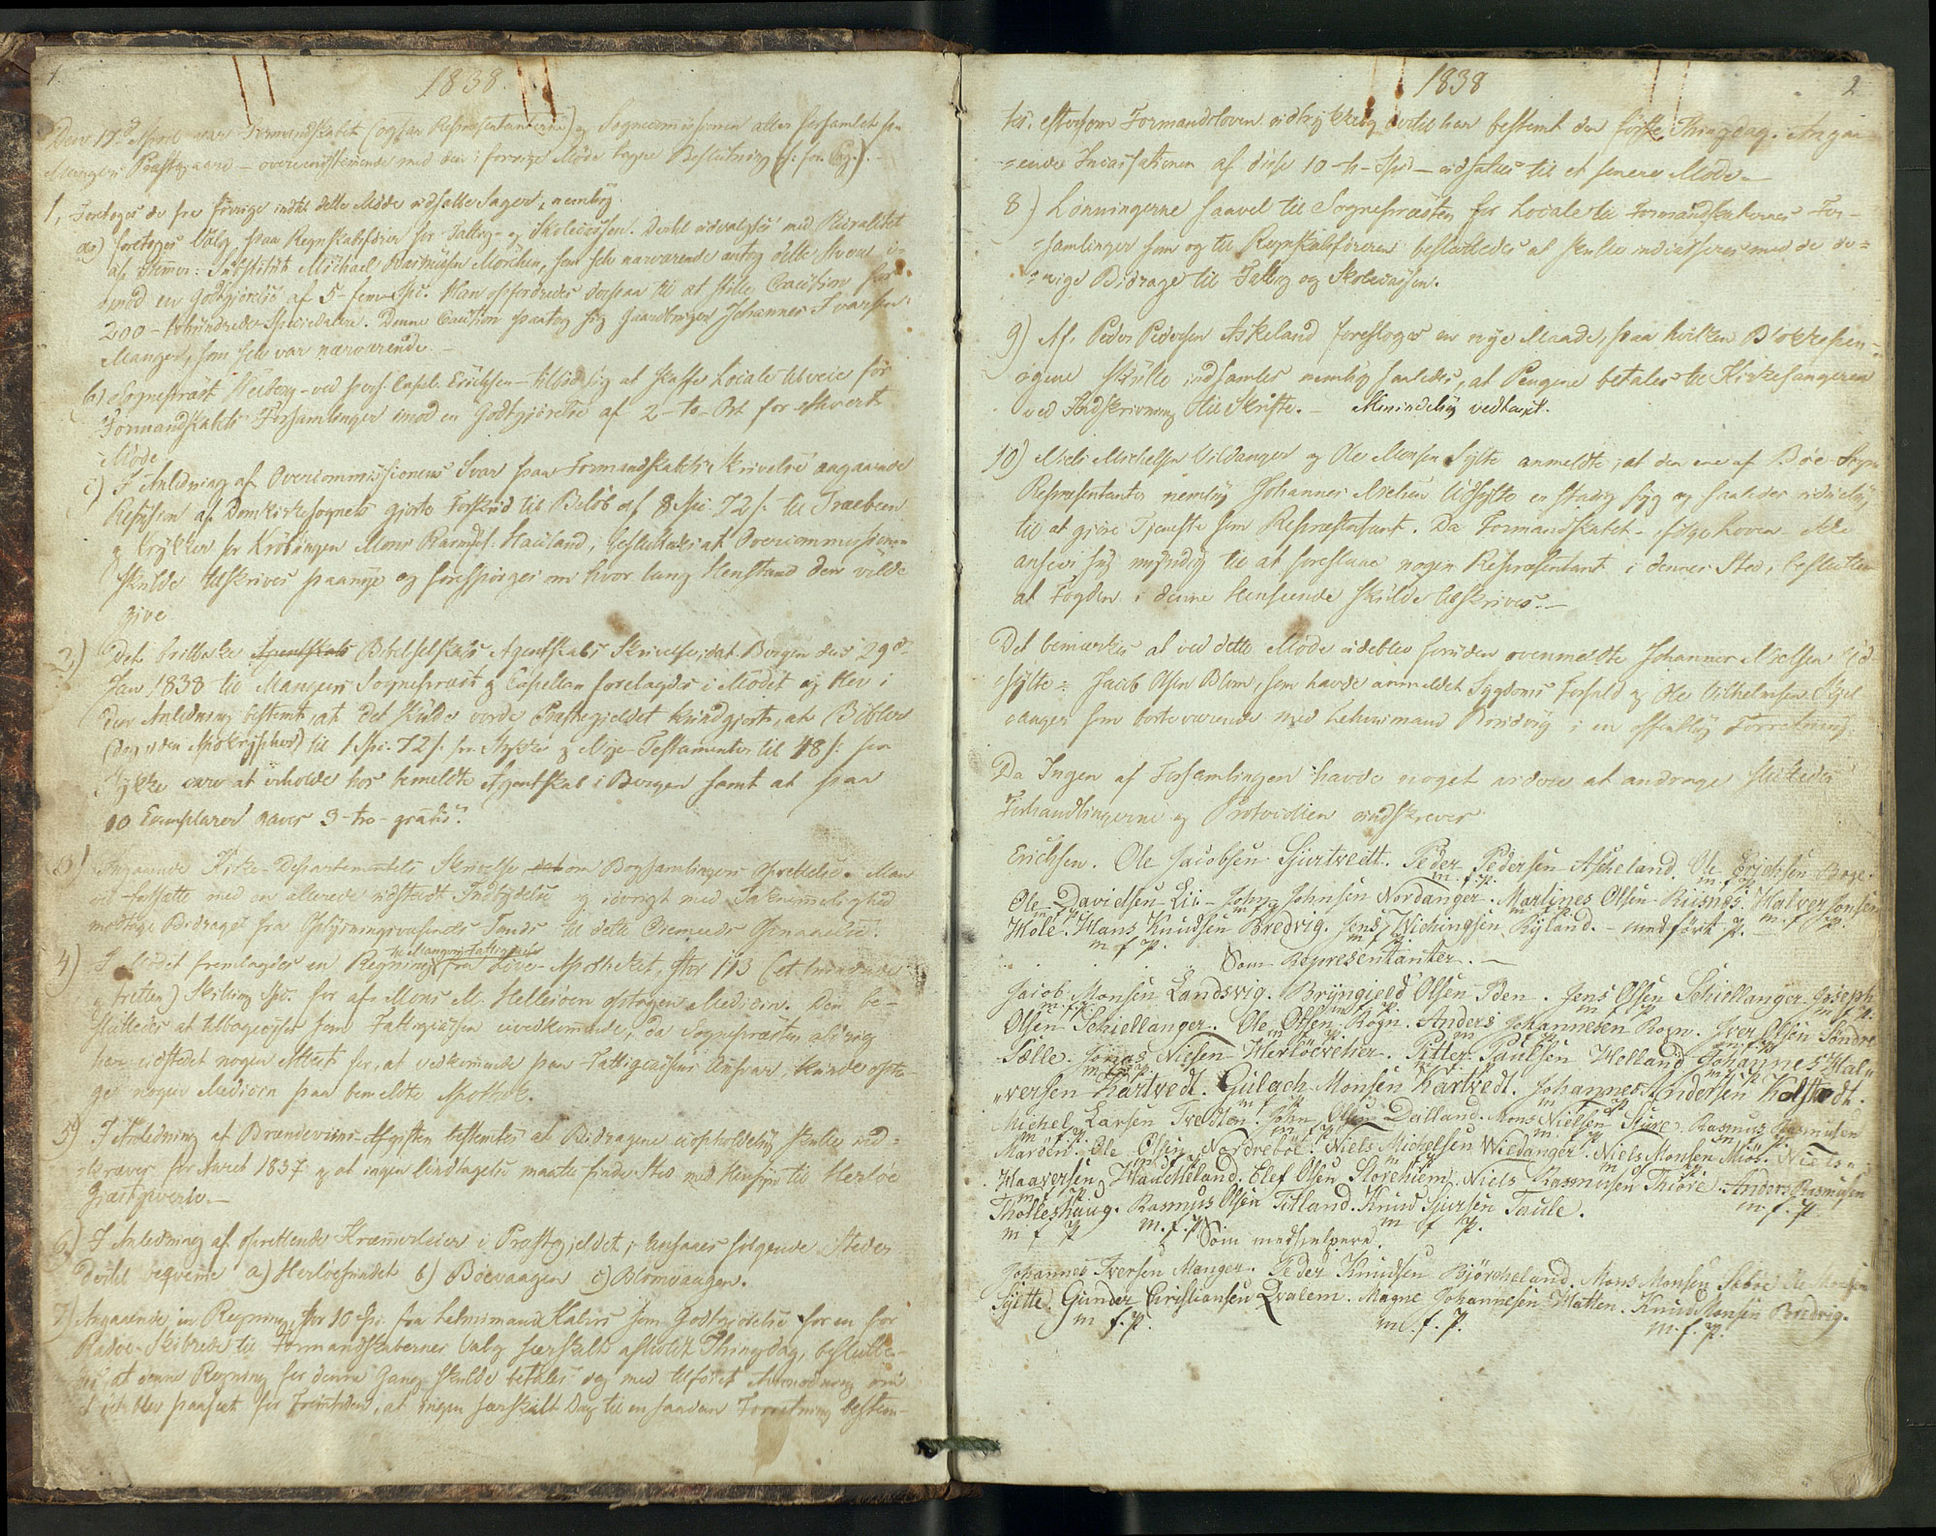 1.
1838.
Den 17de April var Formandskabet (og Representanterne) og Sognecommissionen atter forsamlet paa
Mangers Præstegaard – overeensstemmende med den i forrige Møde tagne Beslutning
1, Foretoges de fra forrige indtil dette Møde udsatte Sager, nemlig:
a) foretoges Valg paa Regnskabsfører for Fattig- og Skolecassen. Dertil udvalgtes med Pluralitet
af Stemmer: Substitut Michael Rasmusen Mörchen, som selv nærværende antog dette Hverv i-
imod en Godtgjörelse af 5-fem-Spd. Han opfordredes derpaa til at stille Caution for
200-tohundrede-Speciedaler. Denne Caution paatog sig Gaardbruger Johannes Ivarsen
Manger, som selv var nærværende. –
b) Sognepræst Heiberg – ved pers. Capel. Erichsen – tilböd sig at skaffe Locale tilveie for
Formandskabets Forsamlinger imod en Godtgjörelse af 2-to-Ort for ethvert
Möde.
c) I Anledning af Overcommissionens Svar paa Formandskabets Skrivelse angaaende
Refusion af Domkirkesognets gjorte Forskud til Belöb af 8 Spd. 72 s. til Træebeen
og Krykker for Kröblingen Mons Rasmus. Haviland, besluttedes at Overcommissionen
skulde tilskrives paanye og forespörges om hvor lang Henstand den vilde
give.
2,) Det brittiske Bibelselskabs Agentskabs Skrivelse, dat. Bergen den 29de
Jan 1838 til Mangers Sognepræst og Capellan forelagdes i Mödet og blev i
den Anledning bestemt, at det skulde vorde Præstegieldet kundgjort, at Bibler
(dog uden Apokrypher) til 1 Spd. 72 s. pr. Stykke og Nye Testamenter til 48 s. pr
Stykke vare at erholde hos bemeldte Agentskab i Bergen samt at paa
10 Exemplarer gaves 3-tre-gratis.
3) Angaaende Kirke-Departementets Skrivelse om Bogsamlingers Oprettelse. Man
med en allerede udstædt Indbydelse og iövrigt med Taknemmelighed
modtage Bidraget fra Oplysningsvæsenets Fonds til dette Öiemeds Opnaaelse.
til Mangers Fattigcasse
4) I Mödet fremlagdes en Regning fra Löve-Apotheket, stor 113 (et hundrede
og tretten) Skilling Spd. for af Mons M. Hellesöen optagen Medicin. Den be-
sluttedes at tilbagevises som Fattigcassen uvedkommende, da Sognepræsten aldrig
har udstædt nogen Attest for, at vedkommende paa Fattigcassens Ansvar, kunde opta-
ge nogen Medicin paa bemeldte Apothek.
5) I Anledning af Brændeviins-Afgiften bestemtes at Bidragene uopholdelig skulle ind-
kræves for Aaret 1837 og at ingen Undtagelse maatte finde Sted med Hensyn til Herlöe
Gjæstgiverie. –
6) I Anledning af oprettende Kræmmerleier i Præstegjeldet, ansaaes følgende Steder
dertil beqvemme a) Herlöesundet b) Böevaagen c) Blomvaagen.
7) Angaaende en Regning, stor 10 Spd. fra Lehnsmand Kalirs som Godtgjörelse for en for
Radöe Skibrede til Formandskabernes Valg særskilt afholdt Thingdag, beslutte-
des at denne Regning for denne Gang skulde betales dog med tilföiet Anmodning om
at det blev paaseet for Fremtiden, at ingen særskilt Dag til en saadan Forretning bestem-
1838
2
tes, eftersom Formandsloven udtrykkelig dertil har bestemt den förste Thingdag. Angaa-
ende Incassationen af disse 10-ti-Spd – udsattes til et senere Möde –
8) Lönningerne saavel til Sognepræsten for Locale til Formandskabernes For-
samlinger som og til Regnskabsföreren besluttedes at skulle indcasseres med de öv-
rige Bidrage til Fattig og Skolecassen.
9) Af Peder Pedersen Askeland foresloges en nye Maade, paa hvilken Blokkepen-
gene skulle indsamles nemlig saaledes, at Pengene betales til Kirkesangeren
ved Indskrivning til Skrifte. – Almindelig vedtaget.
10) Niels Michelsen Vildanger og Ole Monsen Sylte anmeldte, at den ene af Böe Sogns
Repræsentanter nemlig Johannes Nielsen Udsylte er stadig syg og saaledes uduelig
til at gjöre Tjeneste som Repræsentant. Da Formandskabet – ifölge Loven – ikke
ansees sig myndig til at foreslaae nogen Repræsentant i dennes Sted, beslutte
at Fogden i denne Henseende skulde tilskrives. –
Det bemærkes at ved dette Möde udeblev foruden ovenmeldte Johannes Nielsen Ud-
sylte: Jacob Olsen Blom, som havde anmeldet Sygdoms Forfald og Ole Vilhelmsen Skjel-
vanger som bortværende med Lehnsmand Bredvig i en offentlig Forretning.
Da Ingen af Forsamlingen havde noget videre at andrage sluttedes
Forhandlingerne og Protocollen underskrevet
Erichsen. Ole Jacobsen Sjurtvedt. Peder Pedersen Askeland. Ole Erichsen Böge.
m. f. p. m. f. p.
Ole Davielsen Lii – John Johnsen Nordanger. Martines Olsen Riisnes. Halver Jonsen
m f p. m. f. p.
Hole. Hans Knudsen Bredvig. Jens Wichingsen Ryland. – med fört P. –
m f p. m f p.
Som Representanter. –
Jacob Monsen Landsvig. Brÿngield Olsen Iden. Jens Olsen Schiellanger. Joseph
m f p. m f p. m f p.
Olsen Schiellanger. Ole Olsen Rogn. Anders Johannesen Rogn. Iver Olsen Söndre
Sælle. Jonas Nielsen Herlöeveher. Petter Paulsen Holland. Johannes Hal-
versen Kartvedt. Gulach Monsen Kartvedt. Johannes Andersen Kolstvedt.
Michel Larsen Tvedten. John Olsen Dalland. Mons Nielsen Sture. Rasmus Rasmusen
Maröen. Ole Olsen Nordreböe. Niels Michelsen Wildanger. Niels Monsen Miös. Niels
Haaversen Haucheland. Elef Olsen Storehiem. Niels Rasmusen Thiöre. Anders Rasmusen
m f p. m. f. p.
Tholleshaug. Rasmus Olsen Titland. Knud Sjursen Taule.
m f p m. f. p. m f p.
Som medhielpere.
Johannes Iversen Manger. Peder Knudsen Björcheland. Mons Monsen Sæbö Ole Monsen
Sylte. Gunder Cristiansen Qvalem. Magne Johannesen Hatten. Knud Monsen Bredvig.
m f. p. m. f. p. m. f. p.